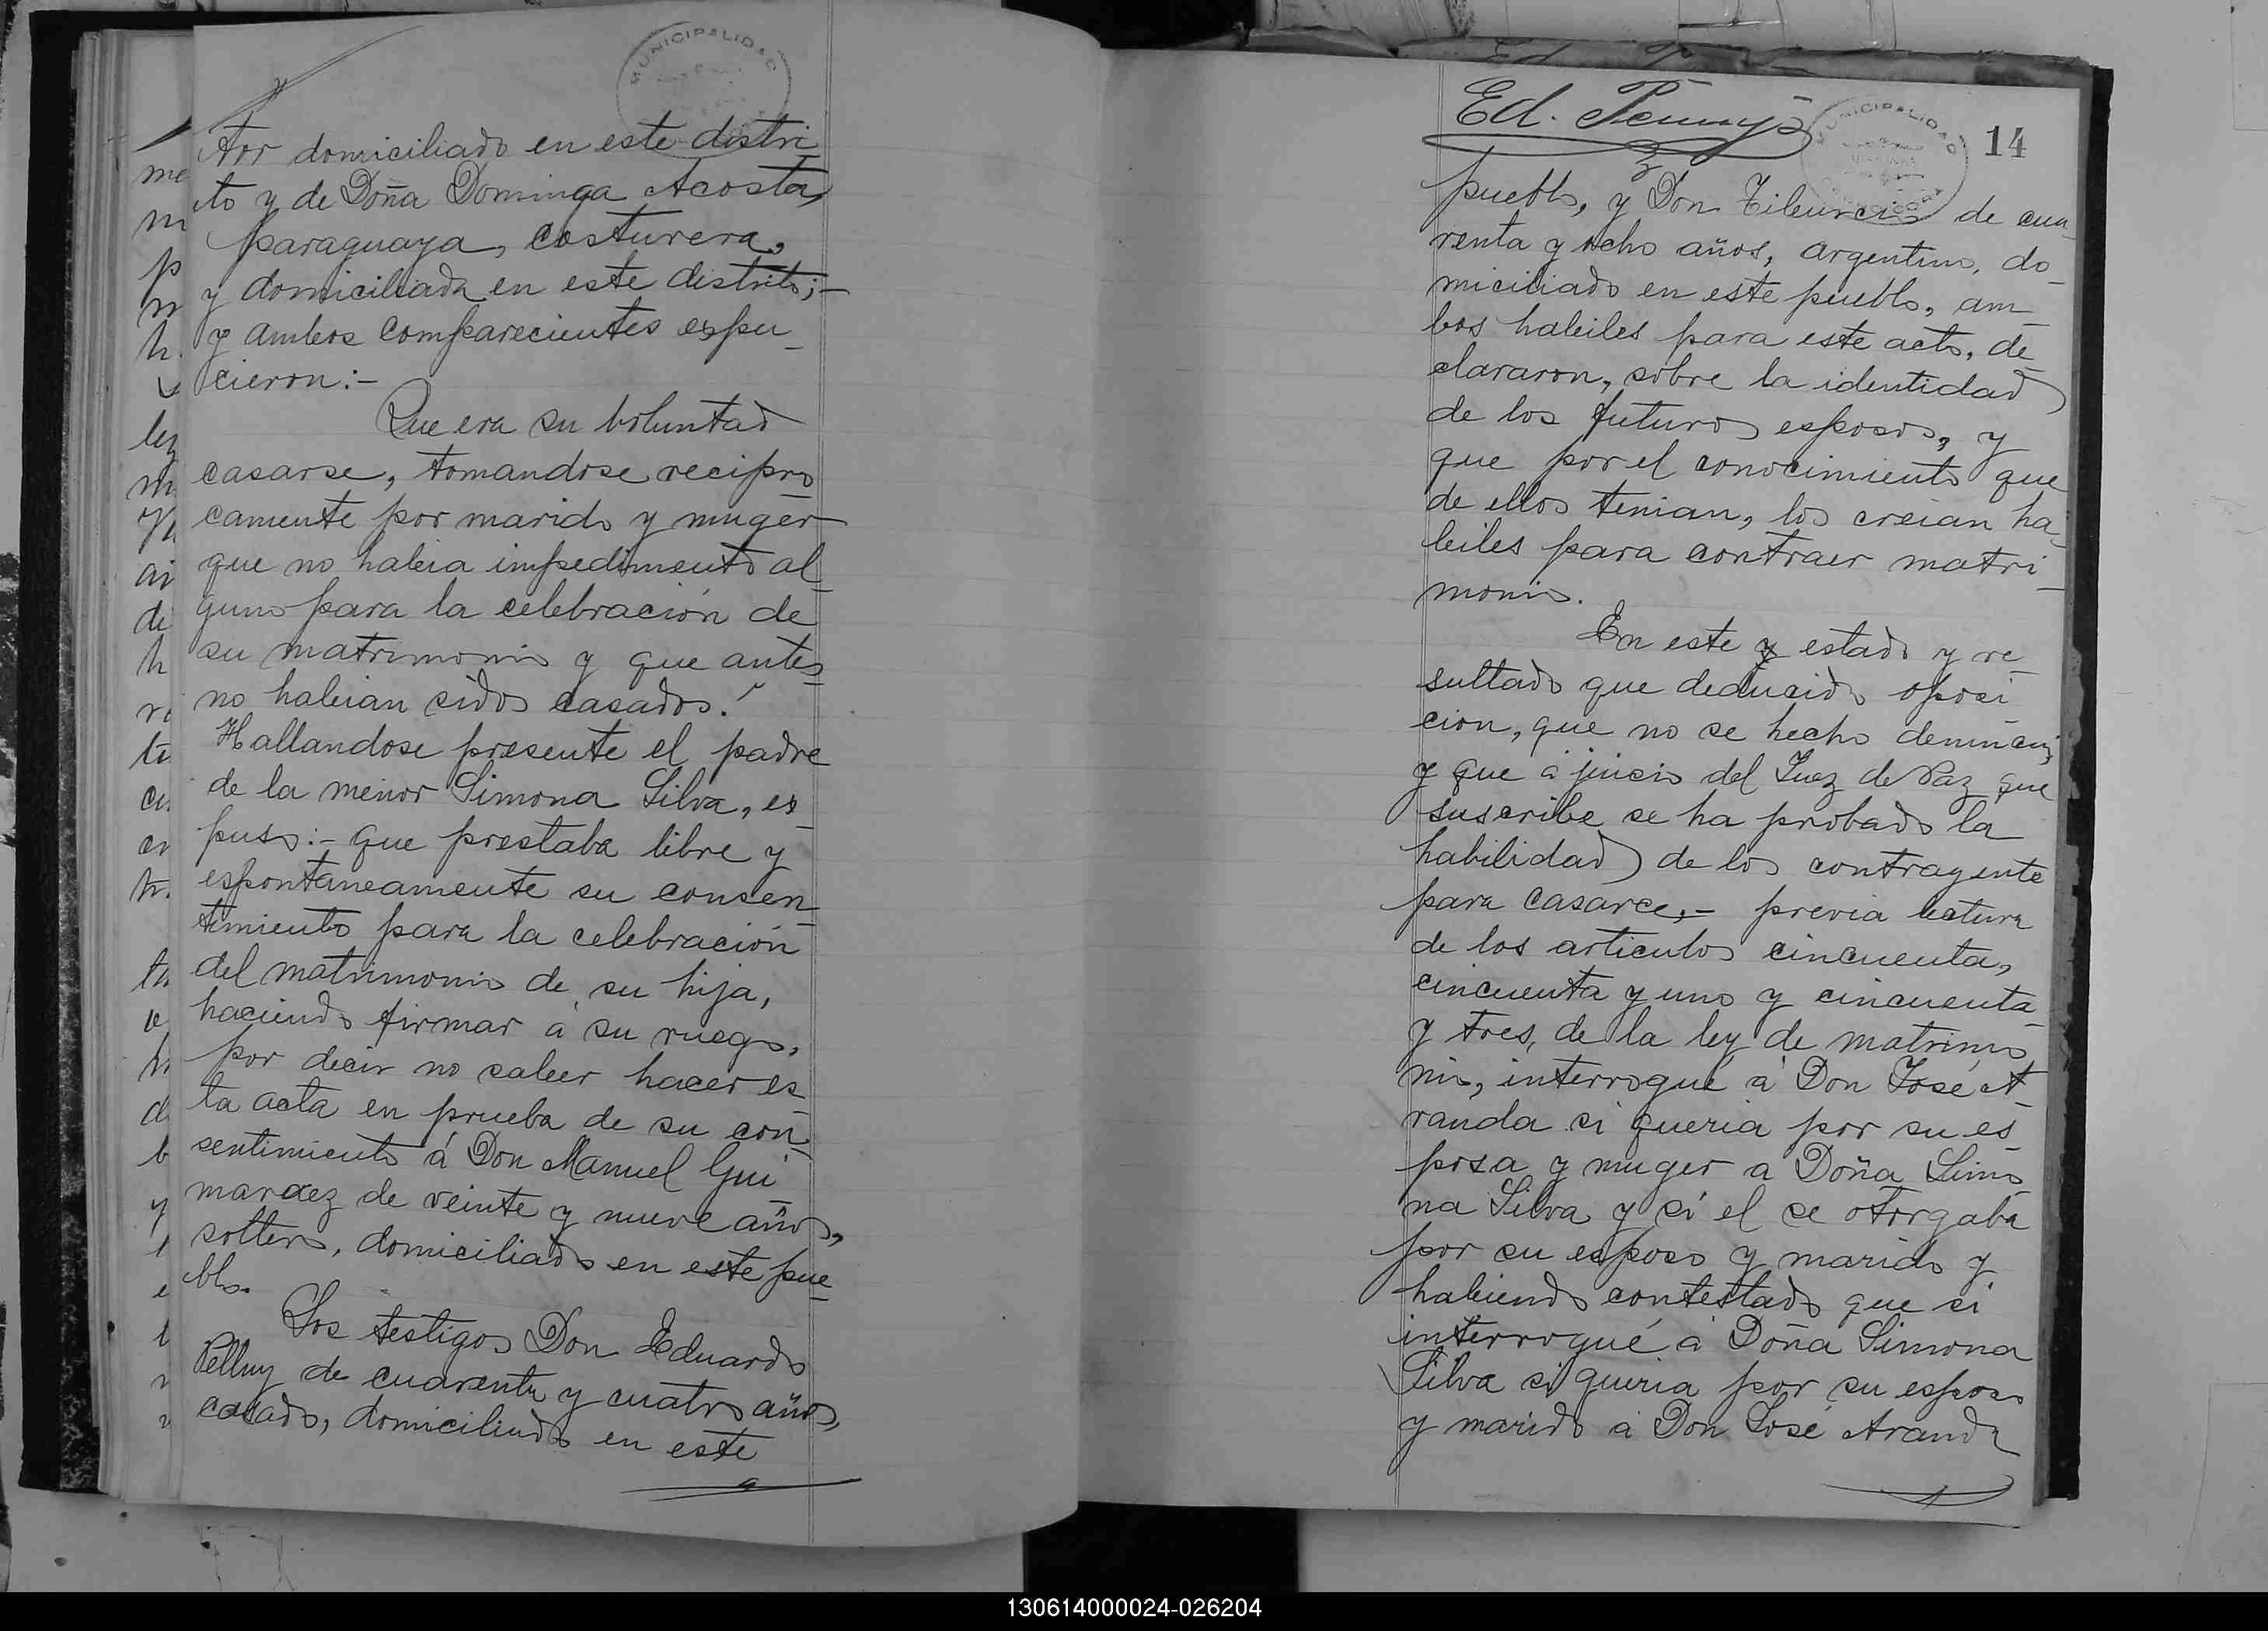 MUNICIPALIDAD
tor domiciliado en este distri
to y de Doña Dominga Acosta,
paraguaya, costurera,
y domiciliada en este distrito;-
y ambos comparecientes espu
cieron:-
Que era su voluntad
casarse, tomandose recipro
camente por marido y muger
que no habia impedimento al
guno para la celebración de
su matrimonio y que antes
no habian sidos casados.
Hallandose presente el padre
de la menor Simona Silva, es
puso:- que prestaba libre y
espontaneamente su consen
timiento para la celebración
del matrimonio de su hija,
haciendo firmar á su ruego,
por decir no saber hacer es
ta acta en prueba de su con
sentimiento á Don Manuel Gui
maraez de veinte y nueve años,
soltero, domiciliado en este pue
blo.
Los testigos Don Eduardo
Pelluy de cuarenta y cuatro años,
casado, domiciliado en este
Ed.
MUNICIPALIDAD
14
pueblo, y Don Tiburcio de cua
renta y ocho años, argentino, do
miciliado en este pueblo, am
bos habiles para este acto, de
clararon, sobre la identidad
de los futuros esposos, y
que por el conocimiento que
de ellos tenian, los creian ha
biles para contraer matri
monio.
En este y estado y re
sultado que deducido oposi
cion, que no se hecho denuncia
y que á juicio del Juez de Paz que
suscribe se ha probado la
habilidad de los contragente
para casarce,- previa lectura
de los articulos cincuenta,
cincuenta y uno y cincuenta
y tres, de la ley de matrimo
nio, interrogué á Don José A
randa si queria por su es
posa y muger a Doña Simo
na Silva y si el se otorgaba
por su esposo y marido y
habiendo contestado que si
interrogué á Doña Simona
Silva si queria por su esposo
y marido á Don José Aranda
130614000024-026204